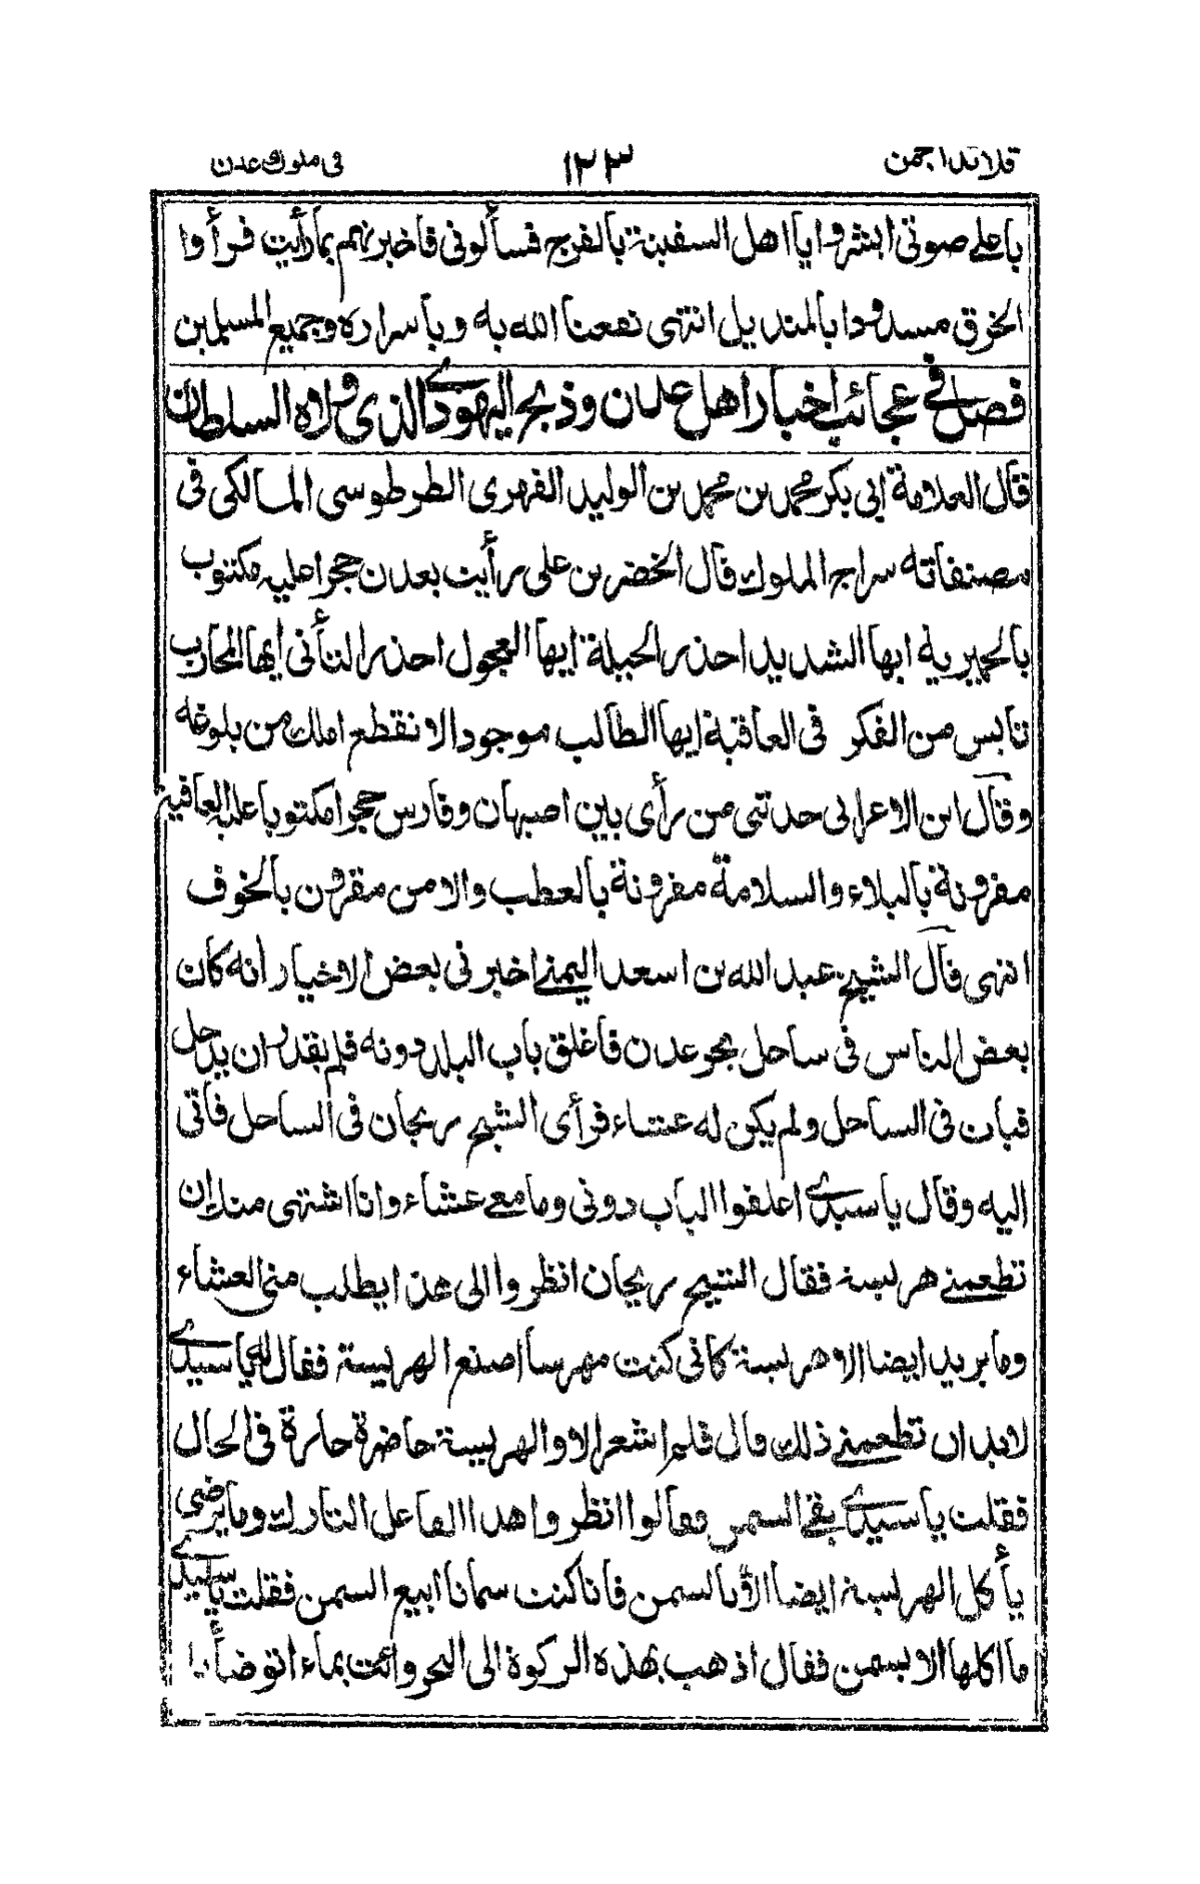 قلائد الجمن ١٢٣ في ملوك عدن
باعلى صوتي ابشروا يا اهل السفينة بالفرج فسألوني فاخبرتهم بمارأيت فرأوا
الخرق مسدودا بالمنديل انتهى نفعنا الله به وباسراره وجميع المسلمين
فصل في عجائب اخبار اهل عدن وذبح اليهودي الذي ولاه السلطان
قال العلامة ابي بكر محمد بن محمد بن الوليد الفهري الطرطوسي المالكي في
مصنفاته سراج الملوك قال الخضر بن علي رأيت بعدن حجرا عليه مكتوب
بالحميرية ايها الشديد احذر الحيلة ايها العجول احذر التأني ايها المحارب
تأيس من الفكر في العاقبة ايها الطالب موجودا لا تقطع املك من بلوغه
وقال ابن الاعرابي حدثني من رأى بين اصبهان وفارس حجرا مكتوبا عليه العافية
مقرونة بالبلاء والسلامة مقرونة بالعطب والامن مقرون بالخوف
انتهى قال الشيخ عبد الله بن اسعد اليمني اخبرني بعض الاخيار أنه كان
بعض الناس في ساحل بحر عدن فاغلق باب البلد دونه فلم يقدر ان يدخل
فبات في الساحل ولم يكن له عشاء فرأى الشيخ ريحان في الساحل فأتى
اليه وقال يا سيدي اغلقوا الباب دوني وما معي عشاء وانا اشتهي منك ان
تطعمني هريسة فقال الشيخ ريحان انظروا الى هذا يطلب مني العشاء
وما يريد ايضا الا هريسة كاني كنت مهرسا اصنع الهريسة فقال له يا سيدي
لابد ان تطعمني ذلك قال فلم اشعر الا والهريسة حاضرة حارة في الحال
فقلت يا سيدي بقي السمن فقالوا انظروا هذا الفاعل التارك وما يرضى
يأكل الهريسة ايضا الا بالسمن فانا كنت سمانا ابيع السمن فقلت يا سيدي
ما اكلها الا بسمن فقال اذهب بهذه الركوة الى البحر وائت بماء اتوضأ